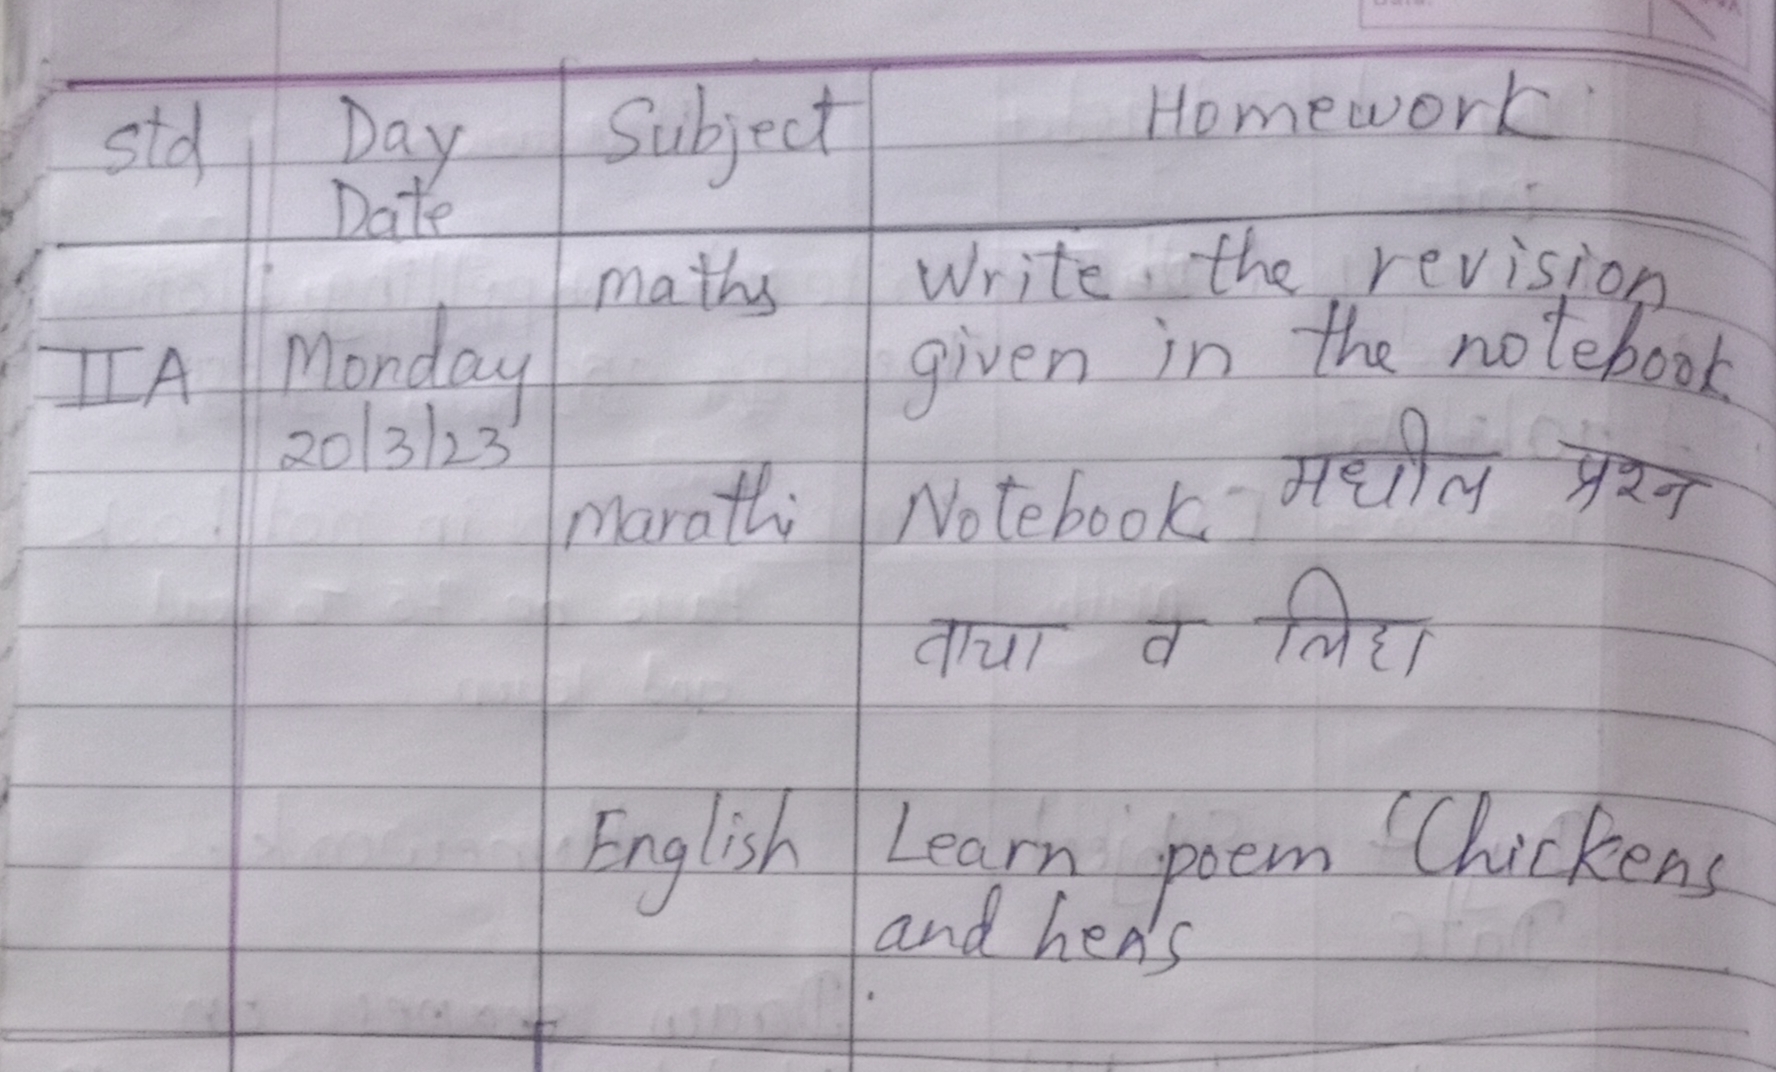 Std Day Subject Homework
Date
Maths Write the revision
II A Monday given in the notebook
20/3/23
Marathi Notebook मधील प्रश्न
वाचा व लिहा
English Learn poem "Chickens
and hens